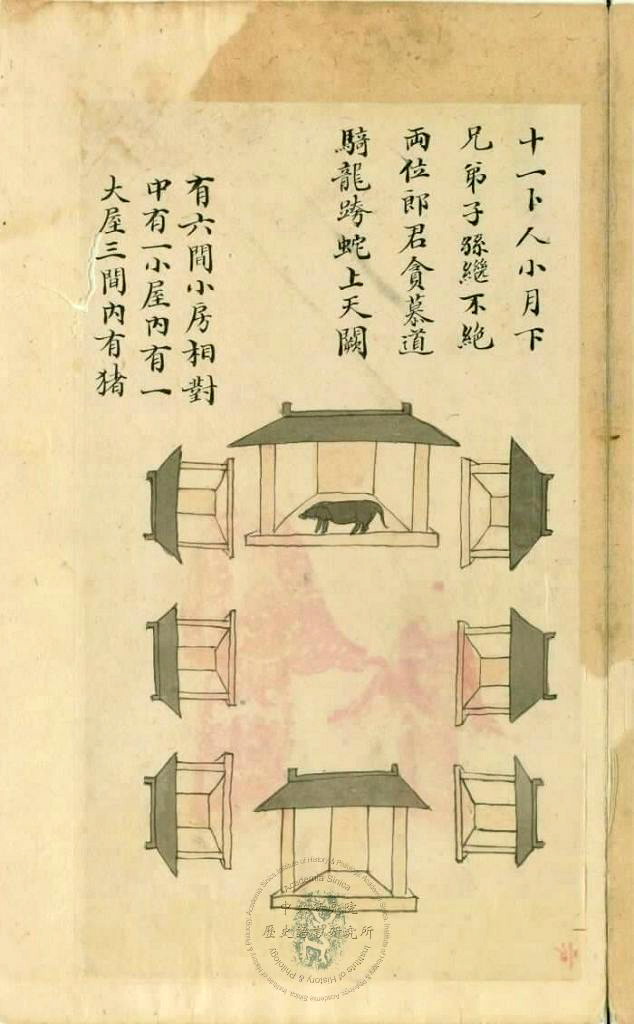 十一卜人小月下
兄弟子孫繼不絶
両位郎君貪慕道
騎龍跨蛇上天闕
有六間小房相對
中有一小屋内有一
大屋三間内有猪
Institute of History & Philology, Academia Sinica
中央研究院
歷史語言研究所